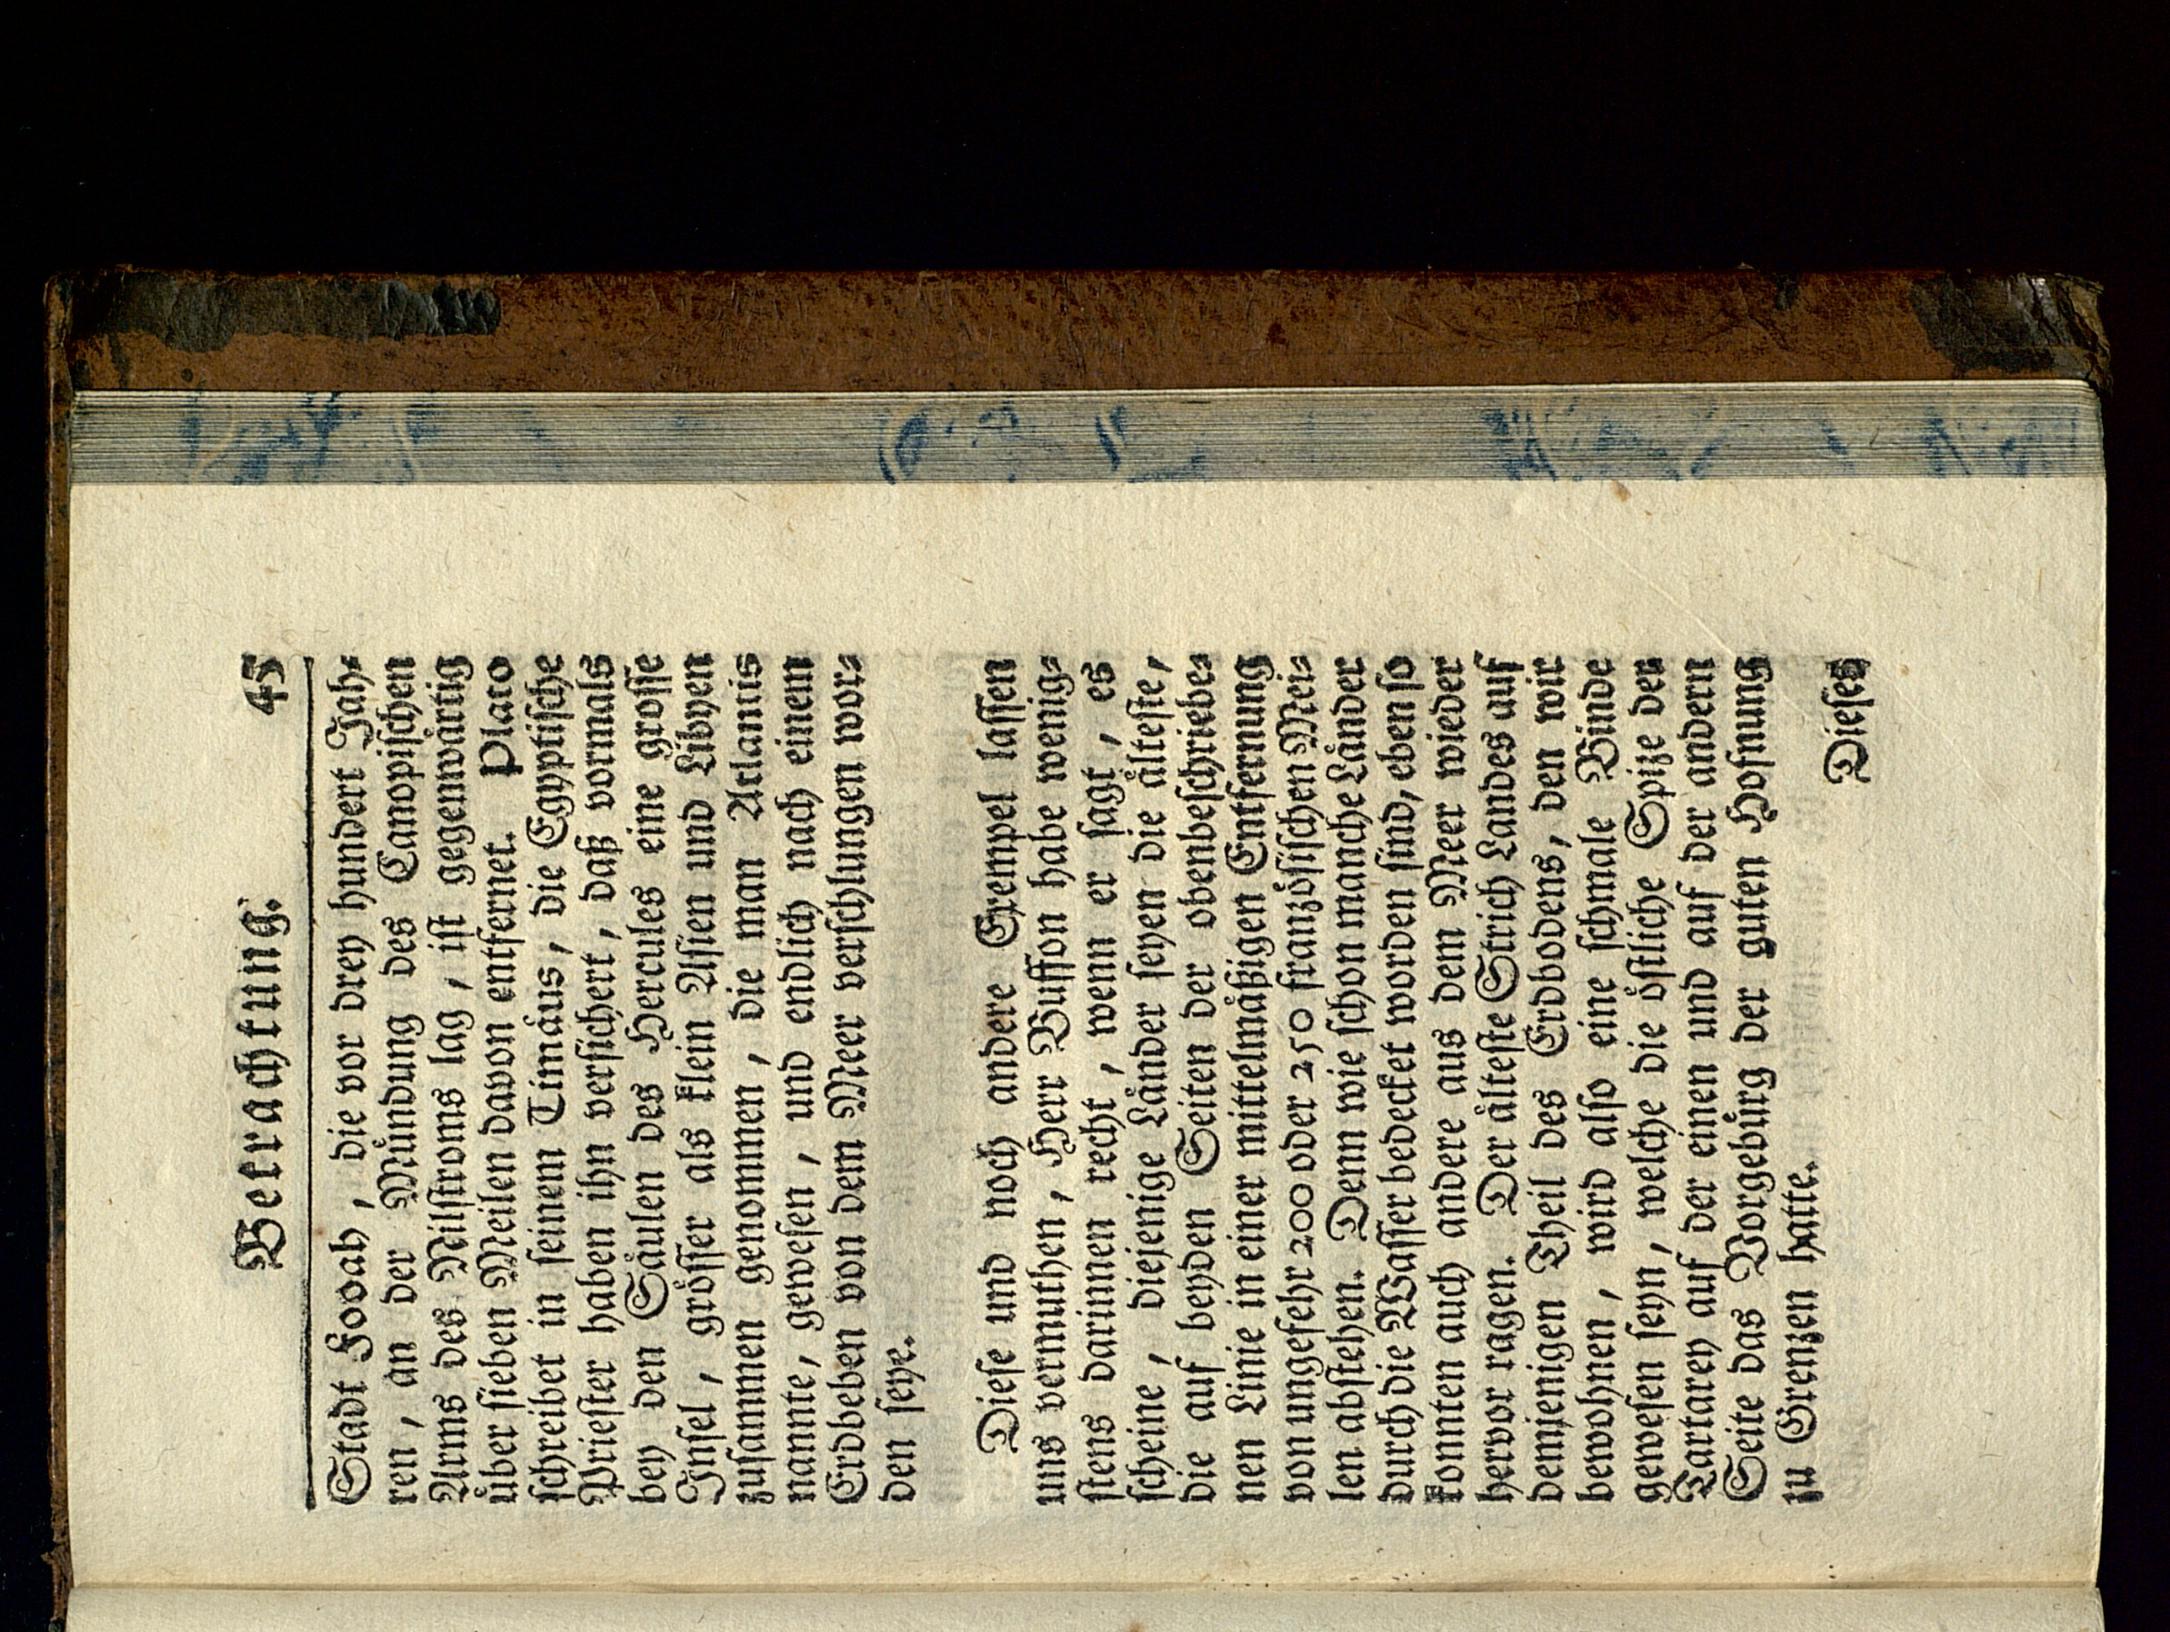 Betrachtung. 45
Stadt Fooah, die vor drey hundert Jah-
ren, an der Mündung des Canopischen
Arms des Nilstroms lag, ist gegenwärtig
über sieben Meilen davon entfernet. Plato
schreibet in seinem Timäus, die Egyptische
Priester haben ihn versichert, daß vormals
bey den Säulen des Hercules eine grosse
Insel, grösser als klein Asien und Libyen
zusammen genommen, die man Atlantis
nannte, gewesen, und endlich nach einem
Erdbeben von dem Meer verschlungen wor-
den seye.
Diese und noch andere Exempel lassen
uns vermuthen, Herr Buffon habe wenig-
stens darinnen recht, wenn er sagt, es
scheine, diejenige Länder seyen die älteste,
die auf beyden Seiten der obenbeschriebe-
nen Linie in einer mittelmäßigen Entfernung
von ungefehr 200 oder 250 französischen Mei-
len abstehen. Denn wie schon manche Länder
durch die Wasser bedecket worden sind, eben so
konnten auch andere aus dem Meer wieder
hervor ragen. Der älteste Strich Landes auf
demjenigen Theil des Erdbodens, den wir
bewohnen, wird also eine schmale Binde
gewesen seyn, welche die östliche Spize der
Tartarey auf der einen und auf der andern
Seite das Vorgebürg der guten Hofnung
zu Grenzen hatte.
Dieses